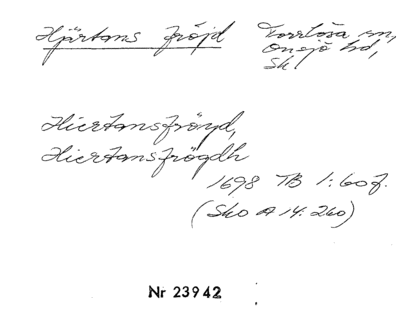 Hjärtans fröjd Torrlösa sn,
Onsjö hd,
Sk.
Hiertansfröyd,
Hiertansfrögdh
1698 TB 1:60f.
(Sko A 14:260)
Nr 23942